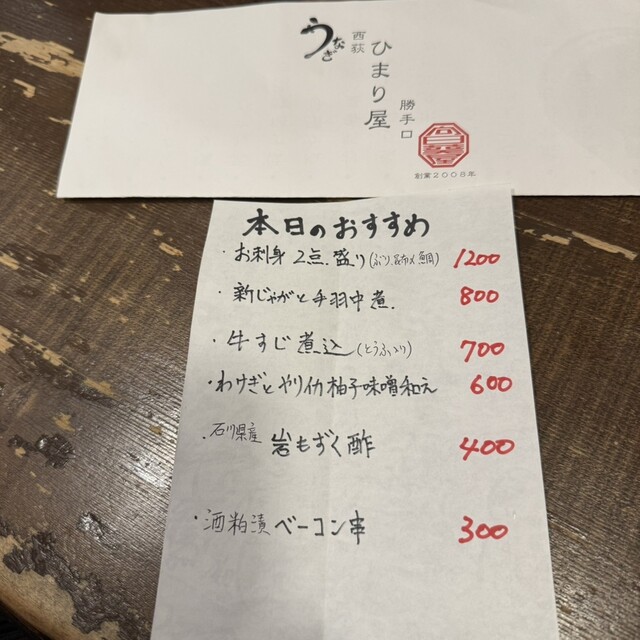 うなぎ
西荻
ひまり屋
勝手口
創業2008年
本日のおすすめ
・お刺身 2点盛り(ぶり、昆布〆鯛) 1200
・新じゃがと手羽中煮 800
・牛すじ煮込(とうふ入り) 700
・わけぎとやりイカ柚子味噌和え 600
・石川県産 岩もずく酢 400
・酒粕漬ベーコン串 300